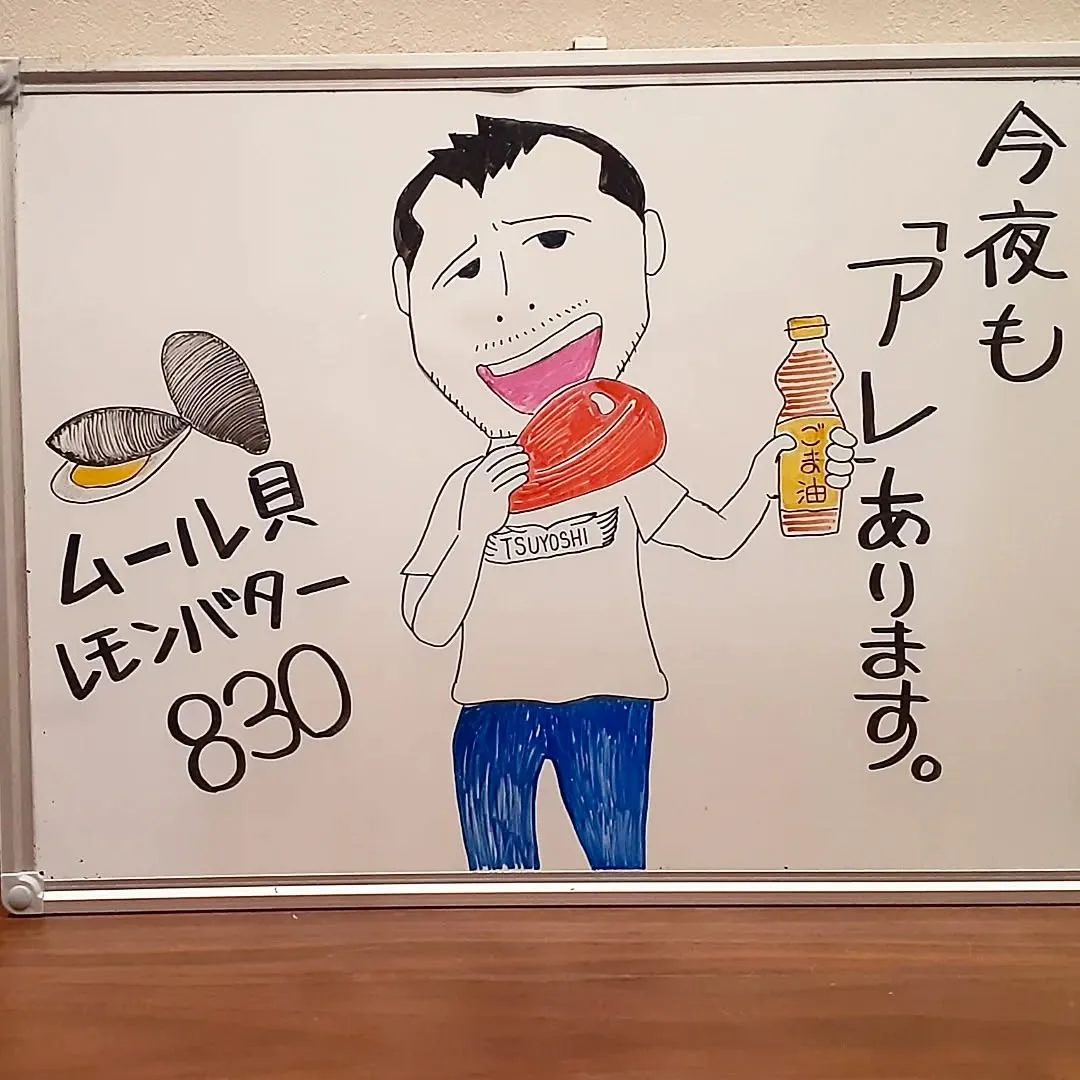 今夜も
「アレ」あります。
ごま油
TSUYOSHI
ムール貝
レモンバター
830